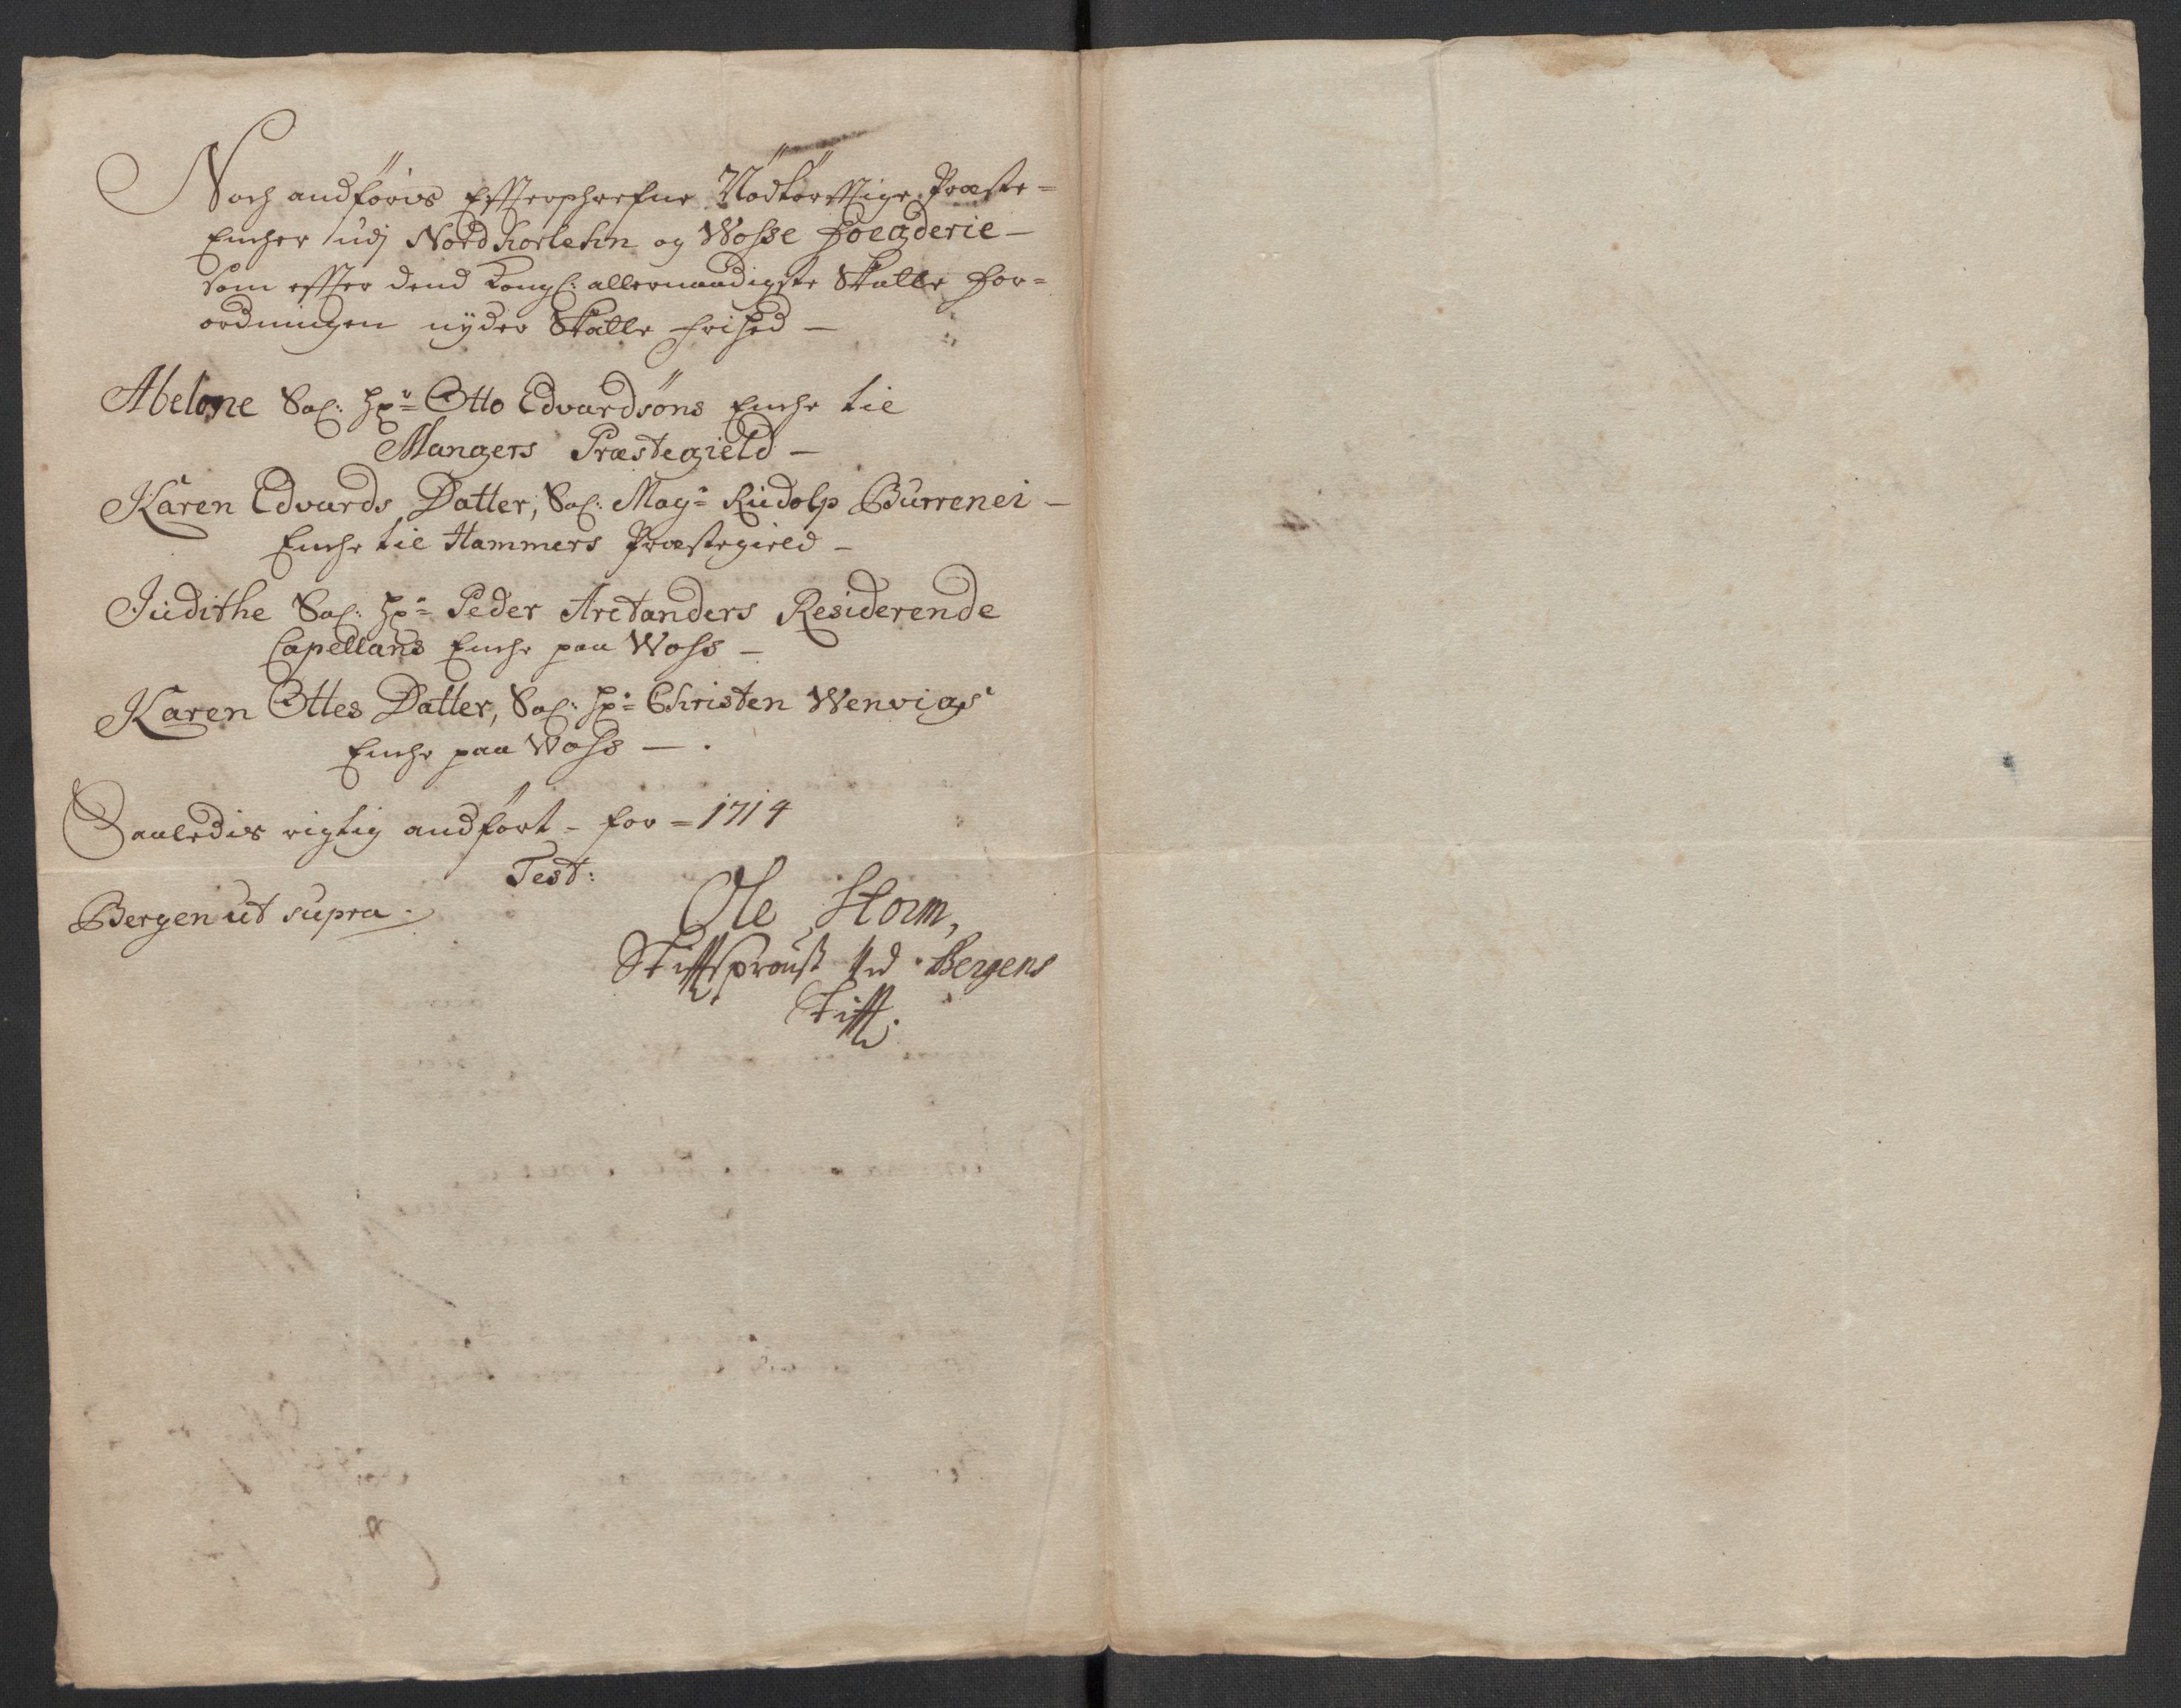 Noch andföris Effterschrefne Nödtörfftige Præste-
Encher udj Nordhorlehn og Wosse Foegderie -
som effter dend Kongl: allernaadigste Skatte For-
ordningen nyder Skatte frihed -
Abelone Sal: Hr= Otto Edvardsöns Enche til
Mangers Præstegield -
Karen Edvards Datter, Sal: Mag= Rudolp Burrenei -
Enche til Hammers Præstegield -
Judithe Sal: Hr= Peder Arctanders Residerende
Capellans Enche paa Woss -
Karen Ottes Datter, Sal: Hr= Christen Wenvigs
Enche paa Woss - .
Saaledis rigtig andfört - for = 1714
Test:
Bergen ut supra.
Ole Storm,
Stifftsproust Bergens
Stifft.